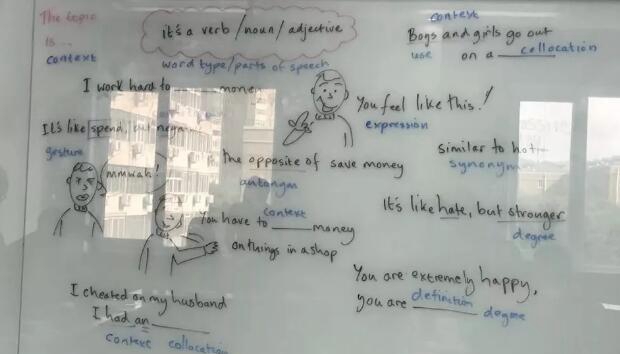 The topic
is...
context
it's a verb/noun/adjective
word type/parts of speech
context
Boys and girls go out
use
on a ______ collocation
I work hard to ______ money
You feel like this!
expression
It's like spend, but nega
gesture
mmwah!
the opposite of save money
antonym
similar to hot
synonym
You have to ______ money
context
on things in a shop
It's like hate, but stronger
degree
I cheated on my husband
I had an ______
context collocation
You are extremely happy,
you are ______ definition degree